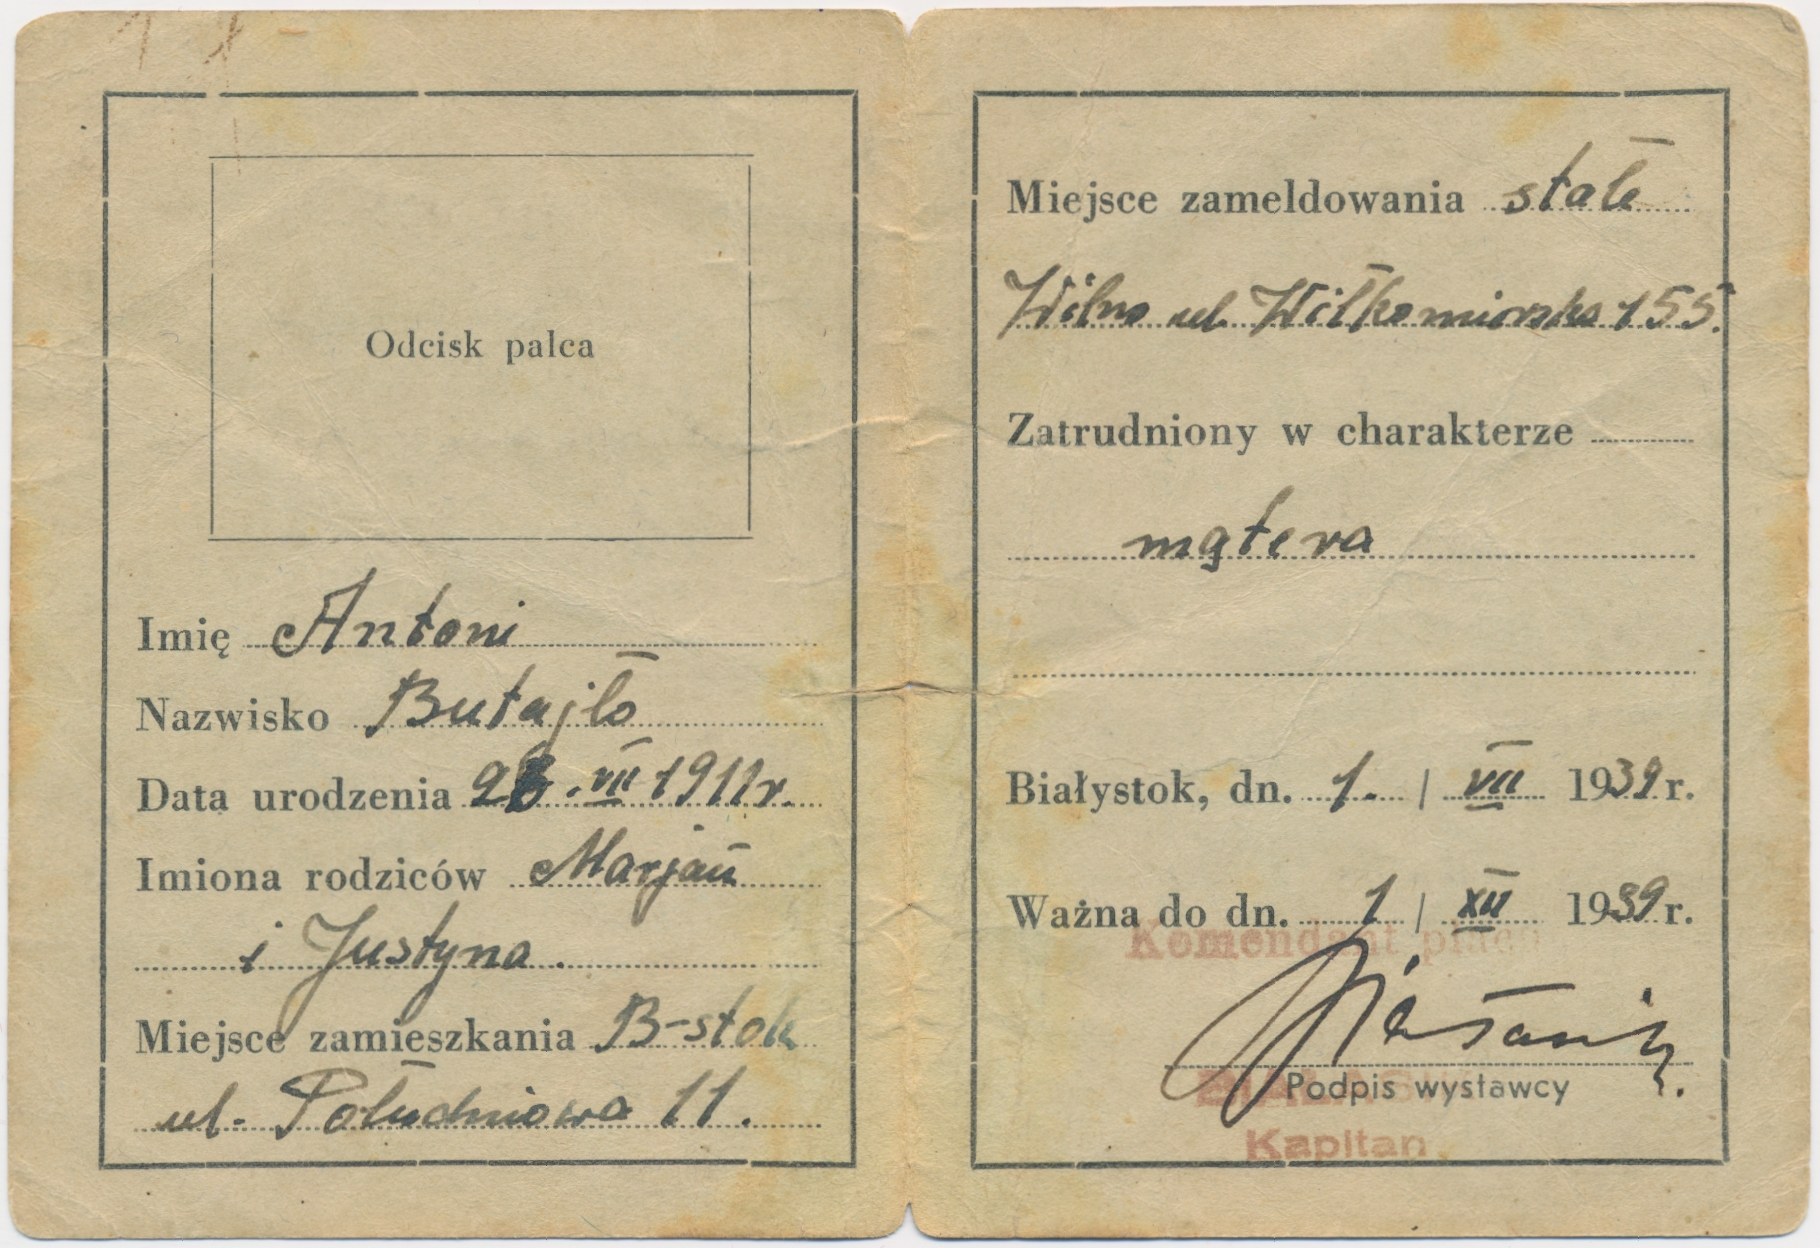 Odcisk palca
Imię Antoni
Nazwisko Butajło
Data urodzenia 28.VII 1911 r.
Imiona rodziców Marjan
i Justyna.
Miejsce zamieszkania B-stok
ul. Południowa 11.
Miejsce zameldowania stałe
Wilno ul. Wiłkomierska 155.
Zatrudniony w charakterze
Białystok, dn. 1. / VII 1939 r.
Ważna do dn. 1 / XII 1939 r.
Komendant placu
Podpis wystawcy
Kapitan